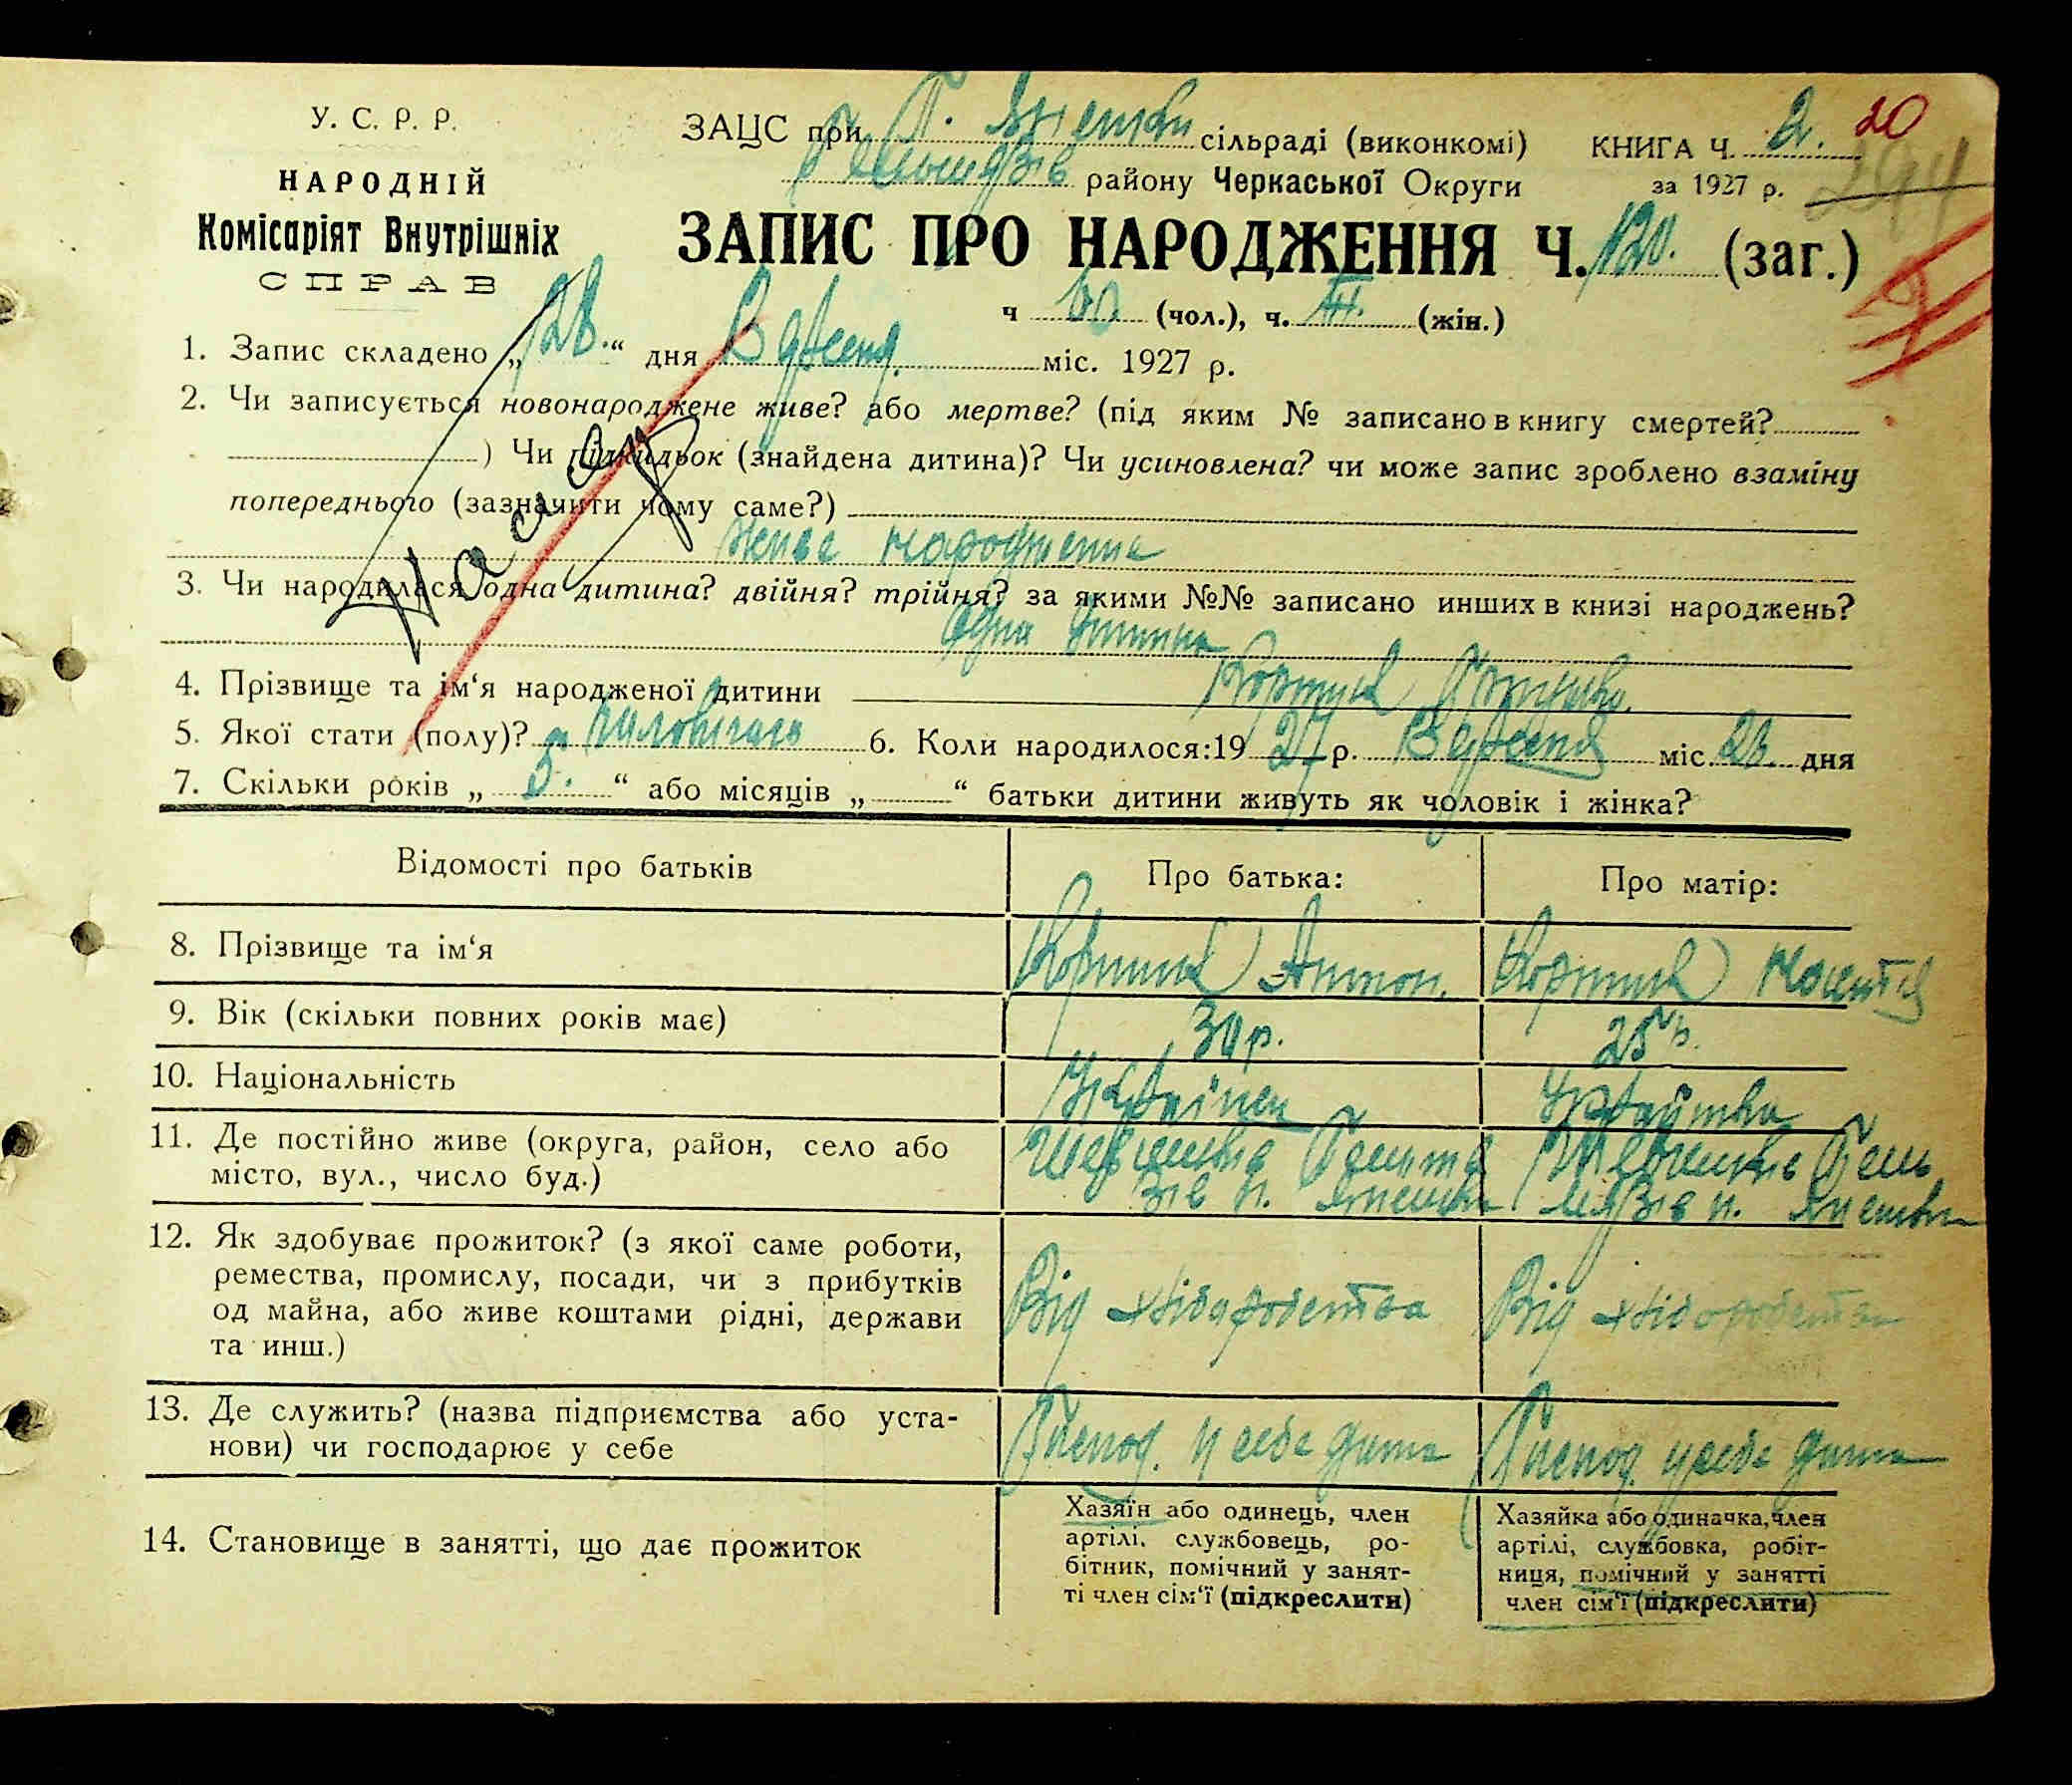 У. С. Р. Р.
НАРОДНІЙ
Комісаріят Внутрішніх
СПРАВ
ЗАЦС при сільраді (виконкомі)
району Черкаської Округи
КНИГА Ч. 2. 20
за 1927 р. 294
ЗАПИС ПРО НАРОДЖЕННЯ Ч. 120. (заг.)
ч 60 (чол.), ч. (жін.)
1. Запис складено „28.“ дня Вересня міс. 1927 р.
2. Чи записується новонароджене живе? або мертве? (під яким № записано в книгу смертей?
) Чи підкидьок (знайдена дитина)? Чи усиновлена? чи може запис зроблено взаміну
попереднього (зазначити чому саме?)
Живе народження
3. Чи народилася одна дитина? двійня? трійня? за якими №№ записано инших в книзі народжень?
Одна дитина
4. Прізвище та ім‘я народженої дитини
5. Якої стати (полу)? 6. Коли народилося: 1927 р. Вересня міс. 23. дня
7. Скільки років „ 5. “ або місяців „ “ батьки дитини живуть як чоловік і жінка?
Відомості про батьків Про батька: Про матір:
8. Прізвище та ім‘я Антон.
9. Вік (скільки повних років має) 30 р. 25 р.
10. Національність Українец Українка
11. Де постійно живе (округа, район, село або
місто, вул., число буд.)
12. Як здобуває прожиток? (з якої саме роботи,
ремества, промислу, посади, чи з прибутків
од майна, або живе коштами рідні, держави
та инш.)
Від хліборобства Від хліборобства
13. Де служить? (назва підприємства або уста-
нови) чи господарює у себе
Господ. у себе дома Господ. у себе дома
14. Становище в занятті, що дає прожиток
Хазяїн або одинець, член
артілі, службовець, ро-
бітник, помічний у занят-
ті член сім‘ї (підкреслити)
Хазяйка або одиначка, член
артілі, службовка, робіт-
ниця, помічний у занятті
член сім‘ї (підкреслити)